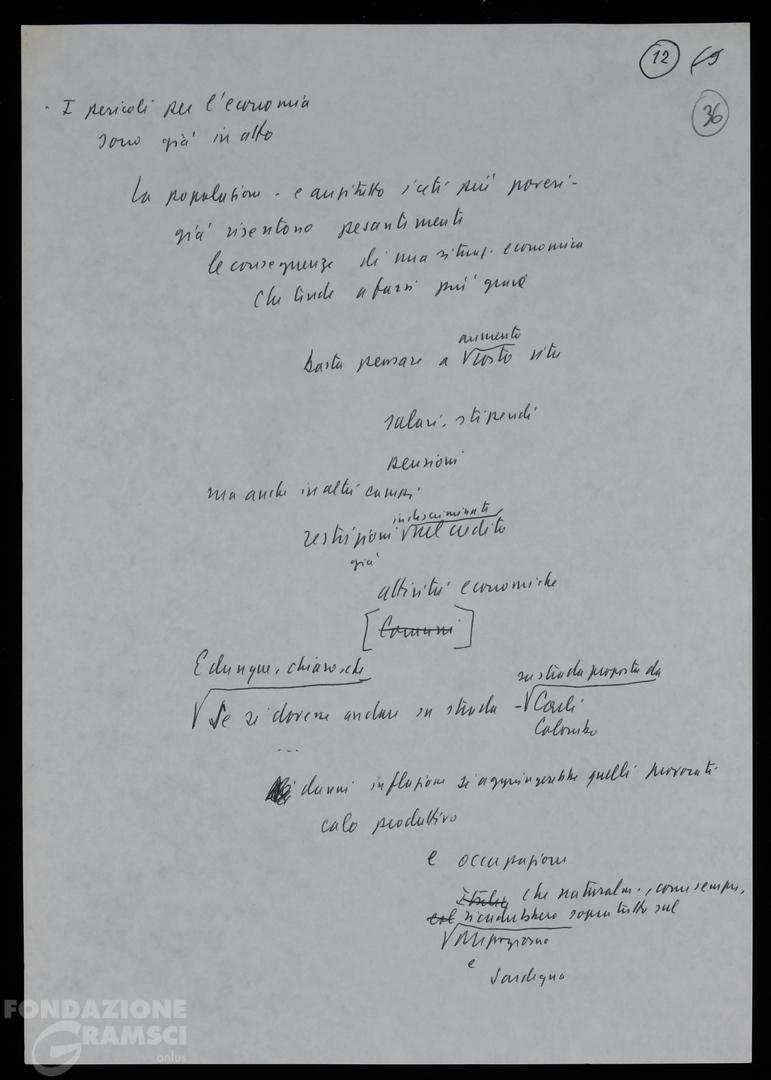 12 65
36
· I pericoli per l'economia
sono già in atto
La popolazione - e anzitutto i ceti più poveri -
già risentono pesantemente
le conseguenze di una situaz. economica
che tende a farsi più grave
aumento
basta pensare a √costo vita
salari, stipendi
pensioni
ma anche in altri campi
indiscriminate
restrizioni √nel credito
già
attività economiche
[Comuni]
E dunque, chiaro, che
su strada proposta da
√Se si dovesse andare su strada -√Carli
Colombo
...
ai danni inflazione si aggiungerebbe quelli provocati
calo produttivo
e occupazione
che naturalm., come sempre,
ricadrebbero soprattutto sul
√Mezzogiorno
e
Sardegna
FONDAZIONE
GRAMSCI
onlus